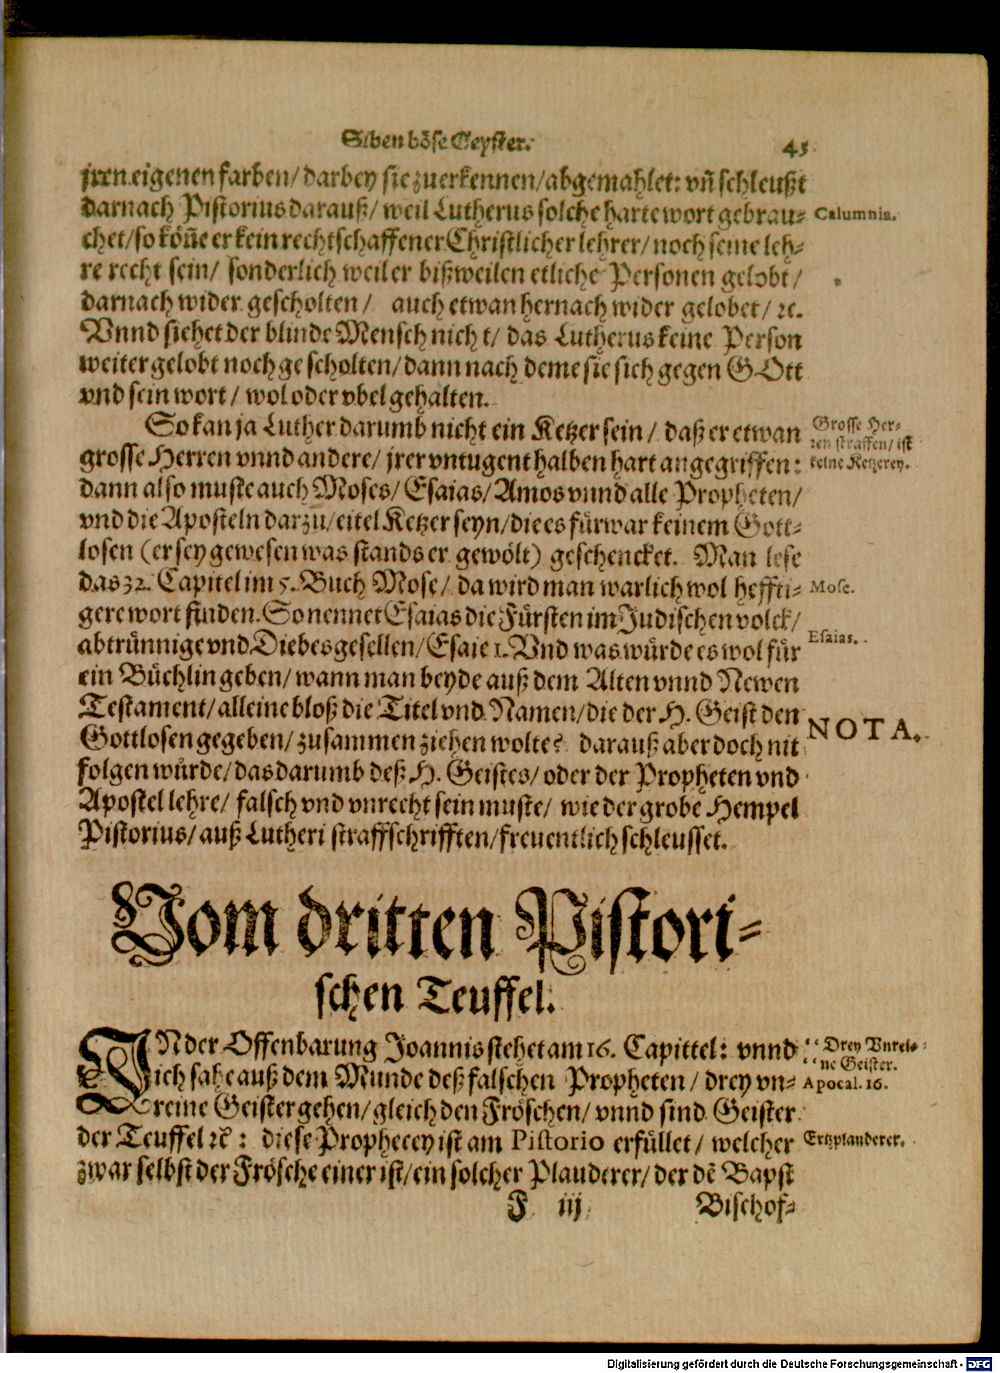 Siben böse Geyster. 45
jren eigenen farben/ darbey sie zuerkennen/ abgemahlet: vñ schleußt
darnach Pistorius darauß/ weil Lutherus solche harte wort gebrau⸗
Calumnia.
chet/ so köñe er kein rechtschaffener Christlicher lehrer/ noch seine leh⸗
re recht sein/ sonderlich weil er bißweilen etliche Personen gelobt/
darnach wider gescholten/ auch etwan hernach wider gelobet/ ꝛc.
Vnnd siehet der blinde Mensch nicht/ das Lutherus keine Person
weiter gelobt noch gescholten/ dann nach deme sie sich gegen GOtt
vnd sein wort/ wol oder vbel gehalten.
So kan ja Luther darumb nicht ein Ketzer sein/ daß er etwan
Grosse Her⸗
ren straffen/ ist
keine Ketzerey.
grosse Herren vnnd andere/ jrer vntugent halben hart angegriffen:
dann also muste auch Moses/ Esaias/ Amos vnnd alle Propheten/
vnd die Aposteln darzu/ eitel Ketzer seyn/ die es fürwar keinem Gott⸗
losen (er sey gewesen was stands er gewölt) geschencket. Man lese
das 32. Capitel im 5. Buch Mose/ da wird man warlich wol heffti⸗
Mose.
gere wort finden. So nennet Esaias die Fürsten im Jüdischen volck/
abtrünnige vnd Diebesgesellen/ Esaie 1. Vnd was würde es wol für
Esaias.
ein Büchlin geben/ wann man beyde auß dem Alten vnnd Newen
Testament/ alleine bloß die Titel vnd Namen/ die der H. Geist den
NOTA.
Gottlosen gegeben/ zusammen ziehen wolte? darauß aber doch nit
folgen würde/ das darumb deß H. Geistes/ oder der Propheten vnd
Apostel lehre/ falsch vnd vnrecht sein muste/ wie der grobe Hempel
Pistorius/ auß Lutheri straffschrifften/ freuentlich schleusset.
Vom dritten Pistori⸗
schen Teuffel.
IN der Offenbarung Joannis stehet am 16. Capittel: vnnd
Drey Vnrei⸗
ne Geister.
Apocal. 16.
ich sahe auß dem Munde deß falschen Propheten/ drey vn⸗
reine Geister gehen/ gleich den Fröschen/ vnnd sind Geister
der Teuffel ꝛc: diese Prophecey ist am Pistorio erfüllet/ welcher
Ertzplauderer.
zwar selbst der Frösche einer ist/ ein solcher Plauderer/ der dē Bapst
F iij Bischof⸗
Digitalisierung gefördert durch die Deutsche Forschungsgemeinschaft - DFG